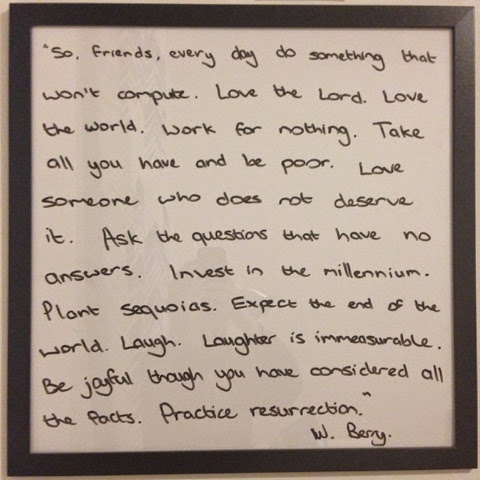 "So, friends, every day do something that
won't compute. Love the Lord. Love
the world. Work for nothing. Take
all you have and be poor. Love
someone who does not deserve
it. Ask the questions that have no
answers. Invest in the millennium.
Plant sequoias. Expect the end of the
world. Laugh. Laughter is immeasurable.
Be joyful though you have considered all
the facts. Practice resurrection."
W. Berry.